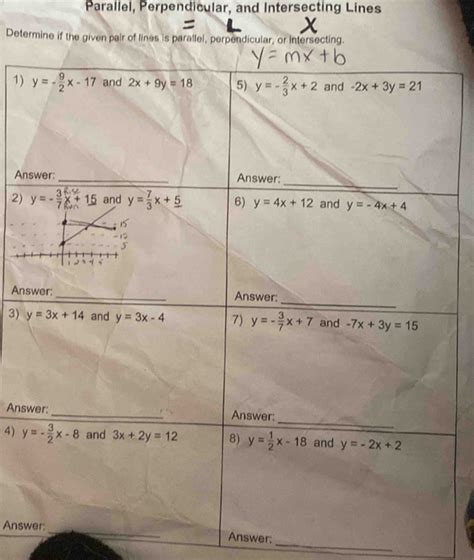 Parallel, Perpendicular, and Intersecting Lines
= L X
Determine if the given pair of lines is parallel, perpendicular, or intersecting.
y = mx + b
1) y = -9/2 x - 17 and 2x + 9y = 18
Answer:
5) y = -2/3 x + 2 and -2x + 3y = 21
Answer:
2) y = -3/7 x + 15 and y = 7/3 x + 5
Rise
Run
15
10
5
1 2 3 4 5
Answer:
6) y = 4x + 12 and y = - 4x + 4
Answer:
3) y = 3x + 14 and y = 3x - 4
Answer:
7) y = -3/7 x + 7 and -7x + 3y = 15
Answer:
4) y = -3/2 x - 8 and 3x + 2y = 12
Answer:
8) y = 1/2 x - 18 and y = - 2x + 2
Answer: